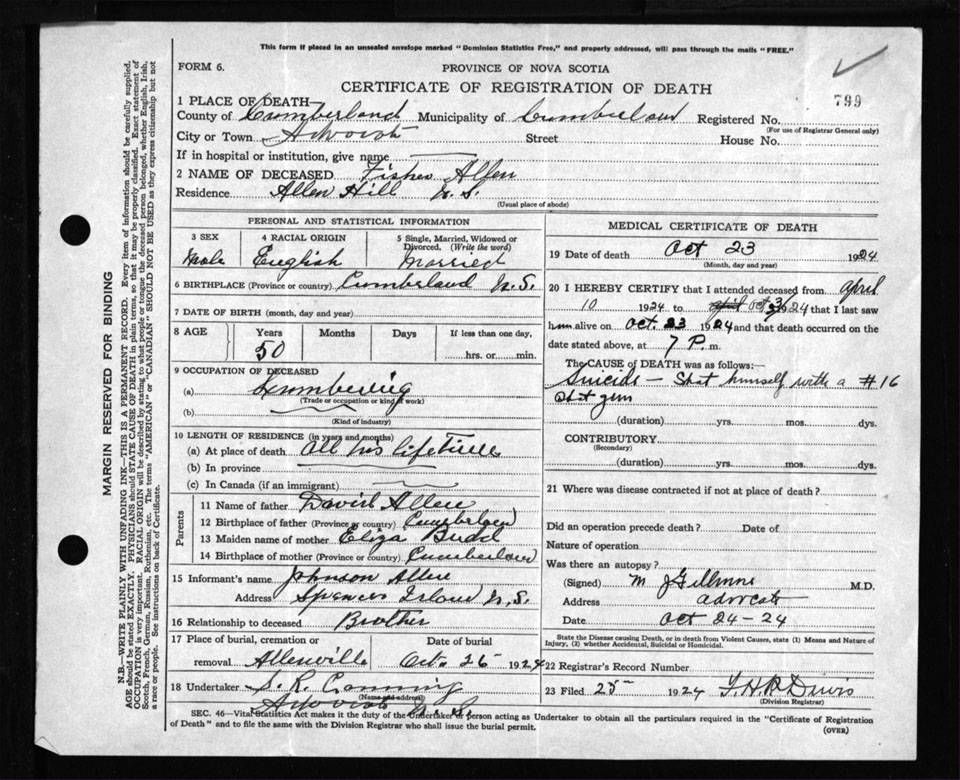 This form if placed in an unsealed envelope marked "Dominion Statistics Free," and properly addressed, will pass through the mails "FREE."
FORM 6.
PROVINCE OF NOVA SCOTIA
CERTIFICATE OF REGISTRATION OF DEATH
799
1 PLACE OF DEATH
County of Cumberland Municipality of Cumberland Registered No.
(For use of Registrar General only)
City or Town Advocate Street House No.
If in hospital or institution, give name
2 NAME OF DECEASED Fisher Allen
Residence Allen Hill N.S.
(Usual place of abode)
PERSONAL AND STATISTICAL INFORMATION
3 SEX
Male
4 RACIAL ORIGIN
English
5 Single, Married, Widowed or Divorced. (Write the word)
Married
6 BIRTHPLACE (Province or country) Cumberland N.S.
7 DATE OF BIRTH (month, day and year)
8 AGE Years Months Days If less than one day,
50 hrs. or min.
9 OCCUPATION OF DECEASED
(a) Lumbering
(Trade or occupation or kind of work)
(b)
(Kind of industry)
10 LENGTH OF RESIDENCE (in years and months)
(a) At place of death All his lifetime
(b) In province
(c) In Canada (if an immigrant)
Parents
11 Name of father David Allen
12 Birthplace of father (Province or country) Cumberland
13 Maiden name of mother Eliza Budd
14 Birthplace of mother (Province or country) Cumberland
15 Informant's name Johnson Allen
Address Spencers Island N.S.
16 Relationship to deceased Brother
17 Place of burial, cremation or Date of burial
removal Allenville Octo 26 1924
18 Undertaker S. R.
(Name and address)
Advocate N.S.
MEDICAL CERTIFICATE OF DEATH
19 Date of death Oct 23 1924
(Month, day and year)
20 I HEREBY CERTIFY that I attended deceased from April
10 1924 to Oct 23 1924 that I last saw
him alive on Oct. 23 1924 and that death occurred on the
date stated above, at 7 P. m.
The CAUSE OF DEATH was as follows:—
Suicide – Shot himself with a #16
shot gun
(duration) yrs. mos. dys.
CONTRIBUTORY
(Secondary)
(duration) yrs. mos. dys.
21 Where was disease contracted if not at place of death?
Did an operation precede death? Date of
Nature of operation
Was there an autopsy?
(Signed) M J M.D.
Address Advocate
Date Oct 24-24
State the Disease causing Death, or in death from Violent Causes, state (1) Means and Nature of Injury, (2) whether Accidental, Suicidal or Homicidal.
22 Registrar's Record Number
23 Filed 25 1924 T.H.R Davis
(Division Registrar)
SEC. 46—Vital Statistics Act makes it the duty of the Undertaker or person acting as Undertaker to obtain all the particulars required in the "Certificate of Registration
of Death" and to file the same with the Division Registrar who shall issue the burial permit.
(OVER)
MARGIN RESERVED FOR BINDING
N.B.—WRITE PLAINLY WITH UNFADING INK—THIS IS A PERMANENT RECORD. Every item of information should be carefully supplied.
AGE should be stated EXACTLY. PHYSICIANS should STATE CAUSE OF DEATH in plain terms, so that it may be properly classified. Exact statement of
OCCUPATION is very important. RACIAL ORIGIN will be described by stating to what people or tongue the deceased person belonged, whether English, Irish,
Scotch, French, German, Russian, Ruthenian, etc. The terms "AMERICAN" or "CANADIAN" SHOULD NOT BE USED as they express citizenship but not
a race or people. See instructions on back of Certificate.